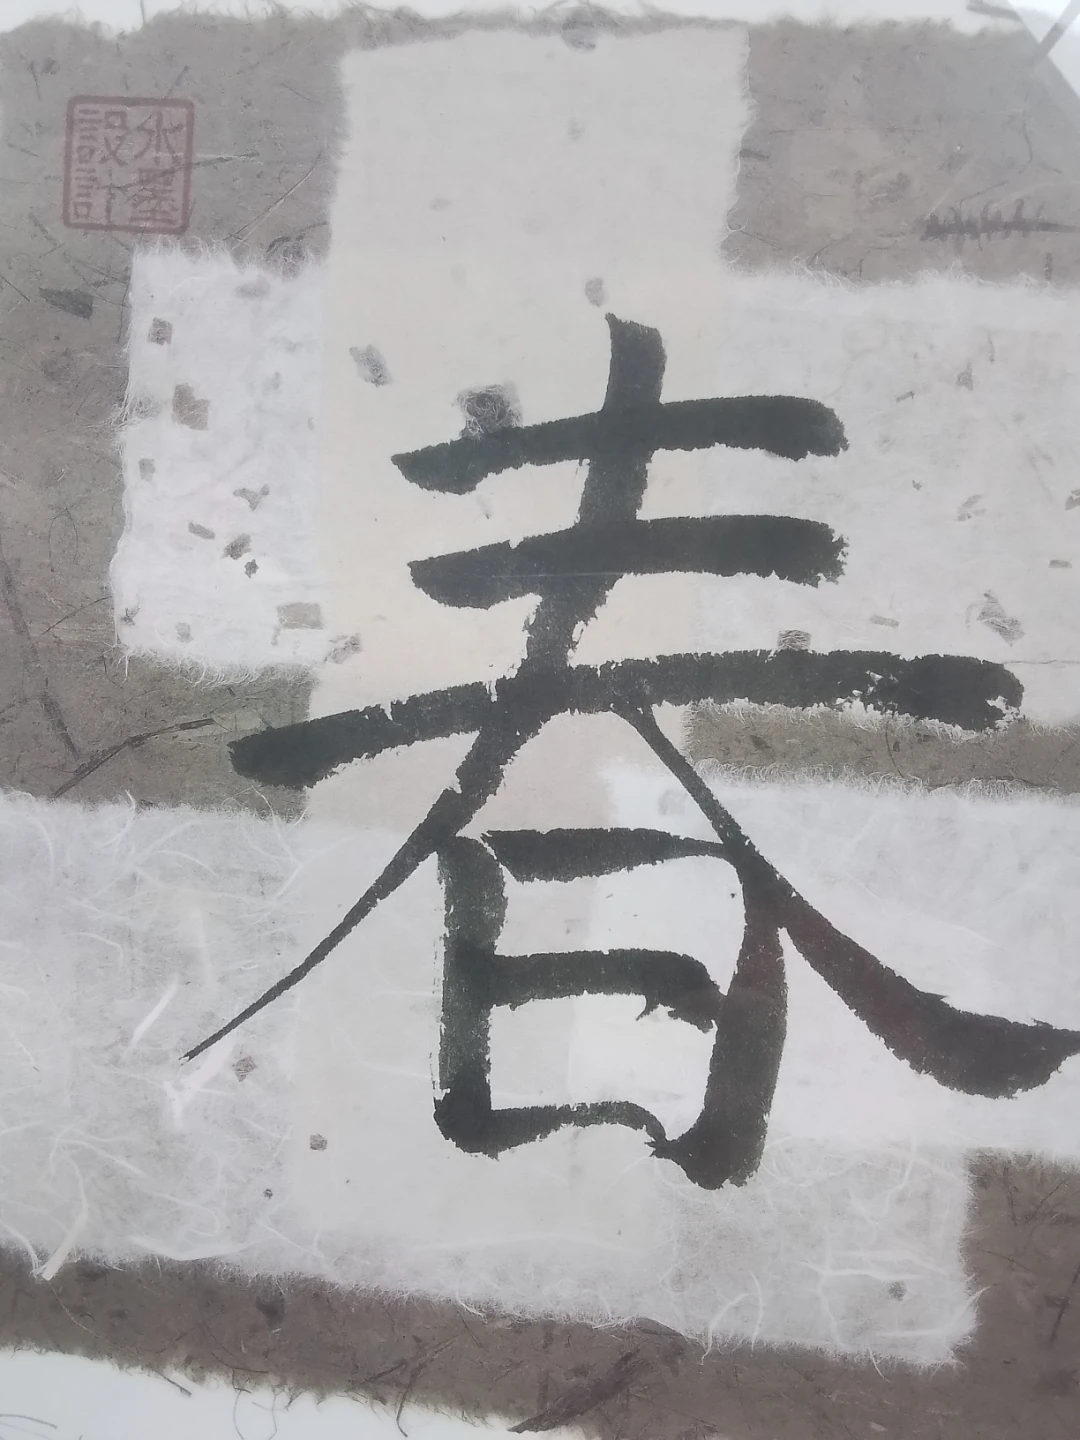 水墨
設計
春